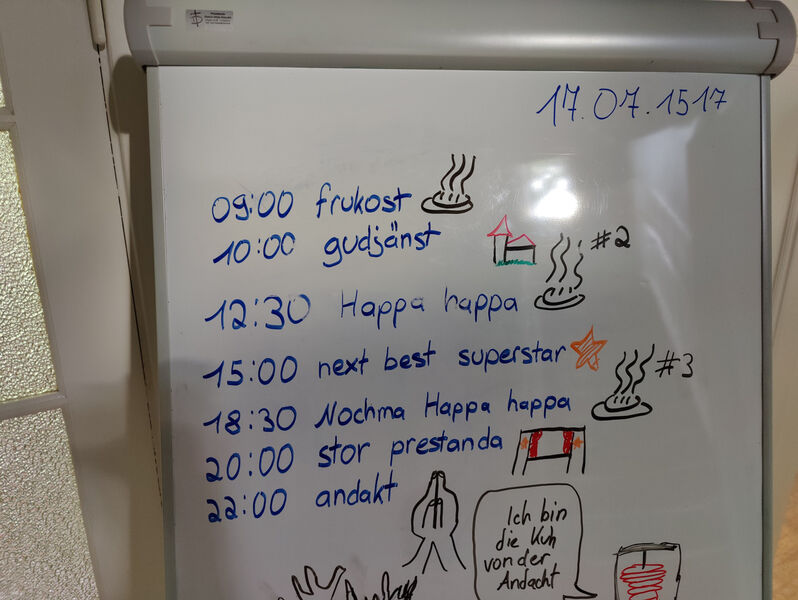 17.07.1517
09:00 frukost
10:00 gudjänst
#2
12:30 Happa happa
15:00 next best superstar
#3
18:30 Nochma Happa happa
20:00 stor prestanda
22:00 andakt
Ich bin
die Kuh
von der
Andacht